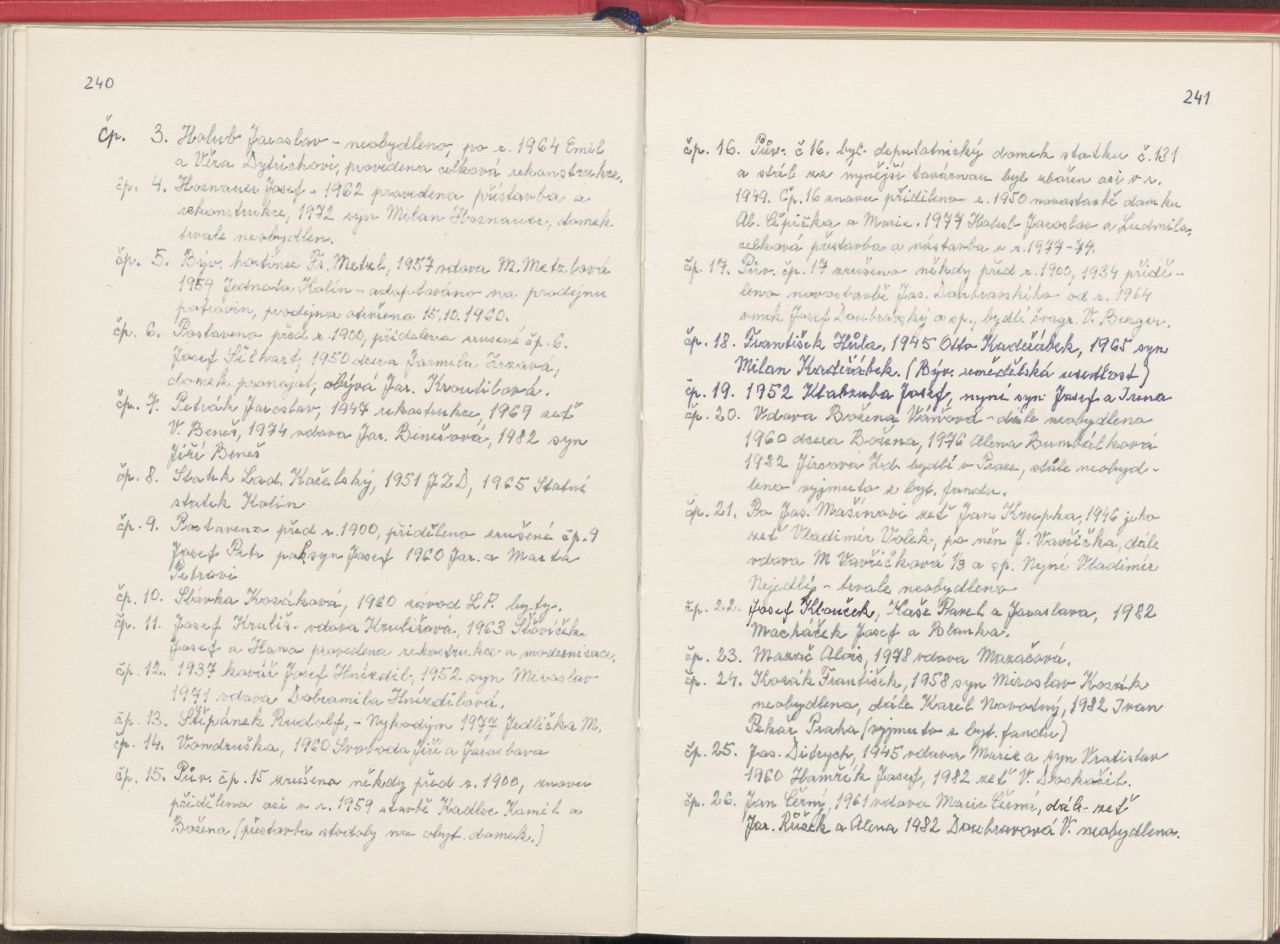 240
čp. 3. Holub Jaroslav - neobydleno, po r. 1964 Emil
a Věra Dytrichovi, provedena celková rekonstrukce.
čp. 4. Hoznauer Josef - 1962 provedena přístavba a
rekonstrukce, 1972 syn Milan Hoznauer, domek
trvale neobydlen.
čp. 5. Býv. hostinec Fr. Metzl, 1957 vdova M. Metzlová
1959 Jednota Kolín - adaptováno na prodejnu
potravin, prodejna otevřena 15.10.1960.
čp. 6. Postaveno před r. 1900, přidělena zrušené čp. 6.
Josef Šilhart, 1950 dcera Jarmila Krzavá,
domek pronajat, obývá Jar. Kroutilová.
čp. 7. Petrák Jaroslav, 1947 rekostrukce, 1969 zeť
V. Beneš, 1974 vdova Jar. Benešová, 1982 syn
Jiří Beneš
čp. 8. Statek Lad. Kořelský, 1951 JZD, 1965 Statní
statek Kolín
čp. 9. Postaveno před r. 1900, přiděleno zrušené čp. 9
Josef Petr pak syn Josef 1960 Jar. a Marta
Petrovi
čp. 10. Slávka Kozáková, 1960 závod L.P. byty.
čp. 11. Josef Krutiš - vdova Krutišová, 1963 Šťovíček
Josef a Hana provedena rekostrukce a modernizace.
čp. 12. 1937 kovář Josef Hnízdil, 1952 syn Miroslav
1971 vdova Dobromila Hnízdilová.
čp. 13. Štěpánek Rudolf, - Vykodým 1977 Jedlička M.
čp. 14. Vondruška, 1960 Svoboda Jiří a Jaroslava
čp. 15. Pův. čp. 15 zrušena někdy před r. 1900, znovu
přidělena asi v r. 1959 stavbě Kadlec Kamil a
Božena (přestavba stodoly na obyt. domek.)
241
čp. 16. Pův. č 16. byl. deputatnický domek statku č. 131
a stál za nynější továrnou byl zbořen asi v r.
1949. Čp. 16 znovu přiděleno r. 1950 novostavbě domku
Al. Čepička a Marie. 1977 Holub Jaroslav a Ludmila,
celková přestavba a nástavba v r. 1977-79.
čp. 17. Pův. čp. 17 zrušeno někdy před r. 1900, 1934 přidě-
leno novostavbě Jos. Doubravského od r. 1964
vnuk Josef Doubravský a sp., bydlí švagr. V. Berger.
čp. 18. František Hůla, 1945 Otto Kadeřábek, 1965 syn
Milan Kadeřábek. (Býv. zemědělská usedlost)
čp. 19. 1952 Klabzuba Josef, nyní syn Josef a Irena
čp. 20. Vdova Božena Váňová - dále neobydlena
1960 dcera Božena, 1976 Alena Bumbálková
1982 Jirsová Zd. bydlí v Praze, stále neobyd-
leno vyjmuto z byt. fondu.
čp. 21. Po Jos. Mašínovi zeť Jan Krupka, 1946 jeho
zeť Vladimír Volek, po něm J. Vavřička, dále
vdova M Vavřičková 1/3 a sp. Nyní Vladimír
Nejedlý - trvale neobydleno
čp. 22. Josef Klouček, Haše Pavel a Jaroslava, 1982
Macháček Josef a Blanka.
čp. 23. Mazač Alois, 1978 vdova Mazačová.
čp. 24. Kozák František, 1958 syn Miroslav Kozák
neobydlena, dále Karel Novodný, 1982 Ivan
Pekař Praha (vyjmuto z byt. fondu)
čp. 25. Jos. Ditrych, 1945 vdova Marie a syn Vratislav
1960 Hamřík Josef, 1982 zeť V. Doskočil.
čp. 26. Jan Černý, 1961 vdova Marie Černá, dále zeť
Jar. Růžek a Alena 1982 Doubravová V. neobydlena.